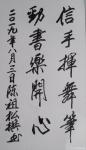 信手揮舞筆
勁書樂開心
二〇一九年八月三日陳祖松撰書